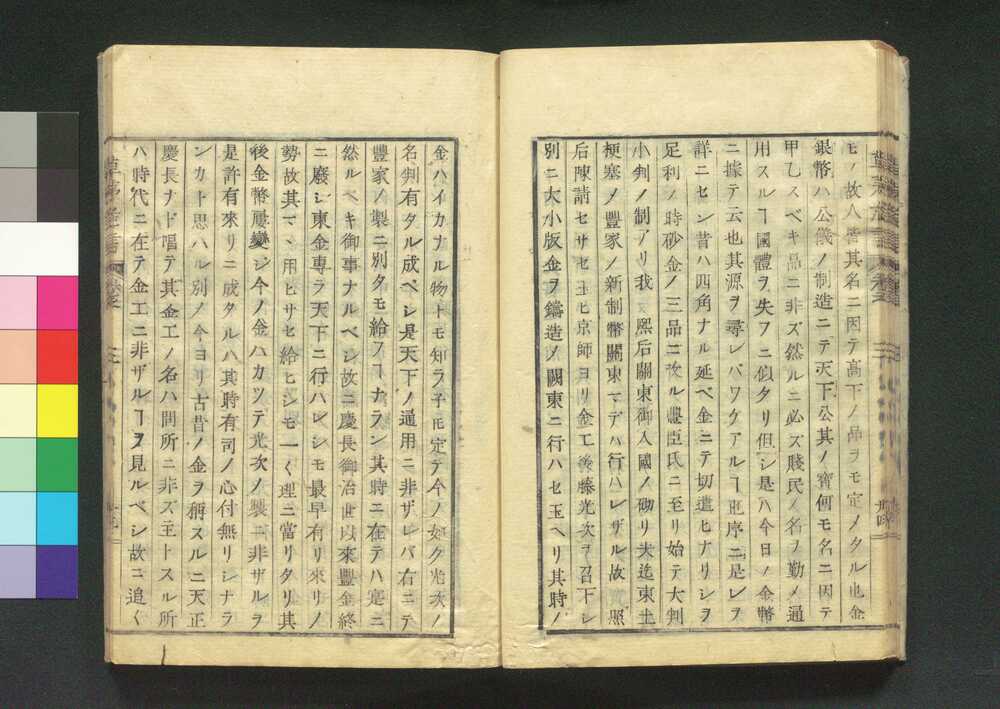 モノ故人皆其名ニ因テ高下ノ品ヲモ定メタル也金
銀幣ハ公儀ノ制造ニテ天下公共ノ寶何モ名ニ因テ
甲乙スベキ品ニ非ズ然ルニ必ズ賤民ノ名ヲ勤メ通
用スルヿ國體ヲ失フニ似タリ但シ是ハ今日ノ金幣
ニ據テ云也其源ヲ尋レバワケアルヿ也序ニ是レヲ
詳ニセン昔ハ四角ナル延ベ金ニテ切遣ヒナリシヲ
足利ノ時砂金ノ三品ニ改ル豊臣氏ニ至リ始テ大判
小判ノ制アリ我 熙后關東御入國ノ砌リ夫迄東土
梗塞ノ豐家ノ新制幣關東マデハ行ハレザル故 熙
后陳請セサセ玉ヒ京師ヨリ金工後藤光次ヲ召下シ
別ニ大小版金ヲ鑄造ノ關東ニ行ハセ玉ヘリ其時ノ
金ハイカナル物トモ知ラ子𪜈定テ今ノ如ク光次ノ
名判有タル成ベシ是天下ノ通用ニ非ザレバ右ニテ
豐家ノ製ニ別タモ給フヿナラン其時ニ在テハ寔ニ
然ルベキ御事ナルベシ故ニ慶長御治世以來豐金終
ニ廢シ東金専ラ天下ニ行ハレシモ最早有リ來リノ
勢故其マヽ用ヒサセ給ヒシモ一〱理ニ當リタリ其
後金幣屢變ジ今ノ金ハカツテ光次ノ製ニ非ザルヲ
是許有來リニ成タルハ其時有司ノ心付無リシナラ
ンカト思ハル別ノ今ヨリ古昔ノ金ヲ稱スルニ天正
慶長ナド唱テ其金工ノ名ハ問所ニ非ズ主トスル所
ハ時代ニ在テ金工ニ非ザルヿヲ見ルベシ故ニ追〱